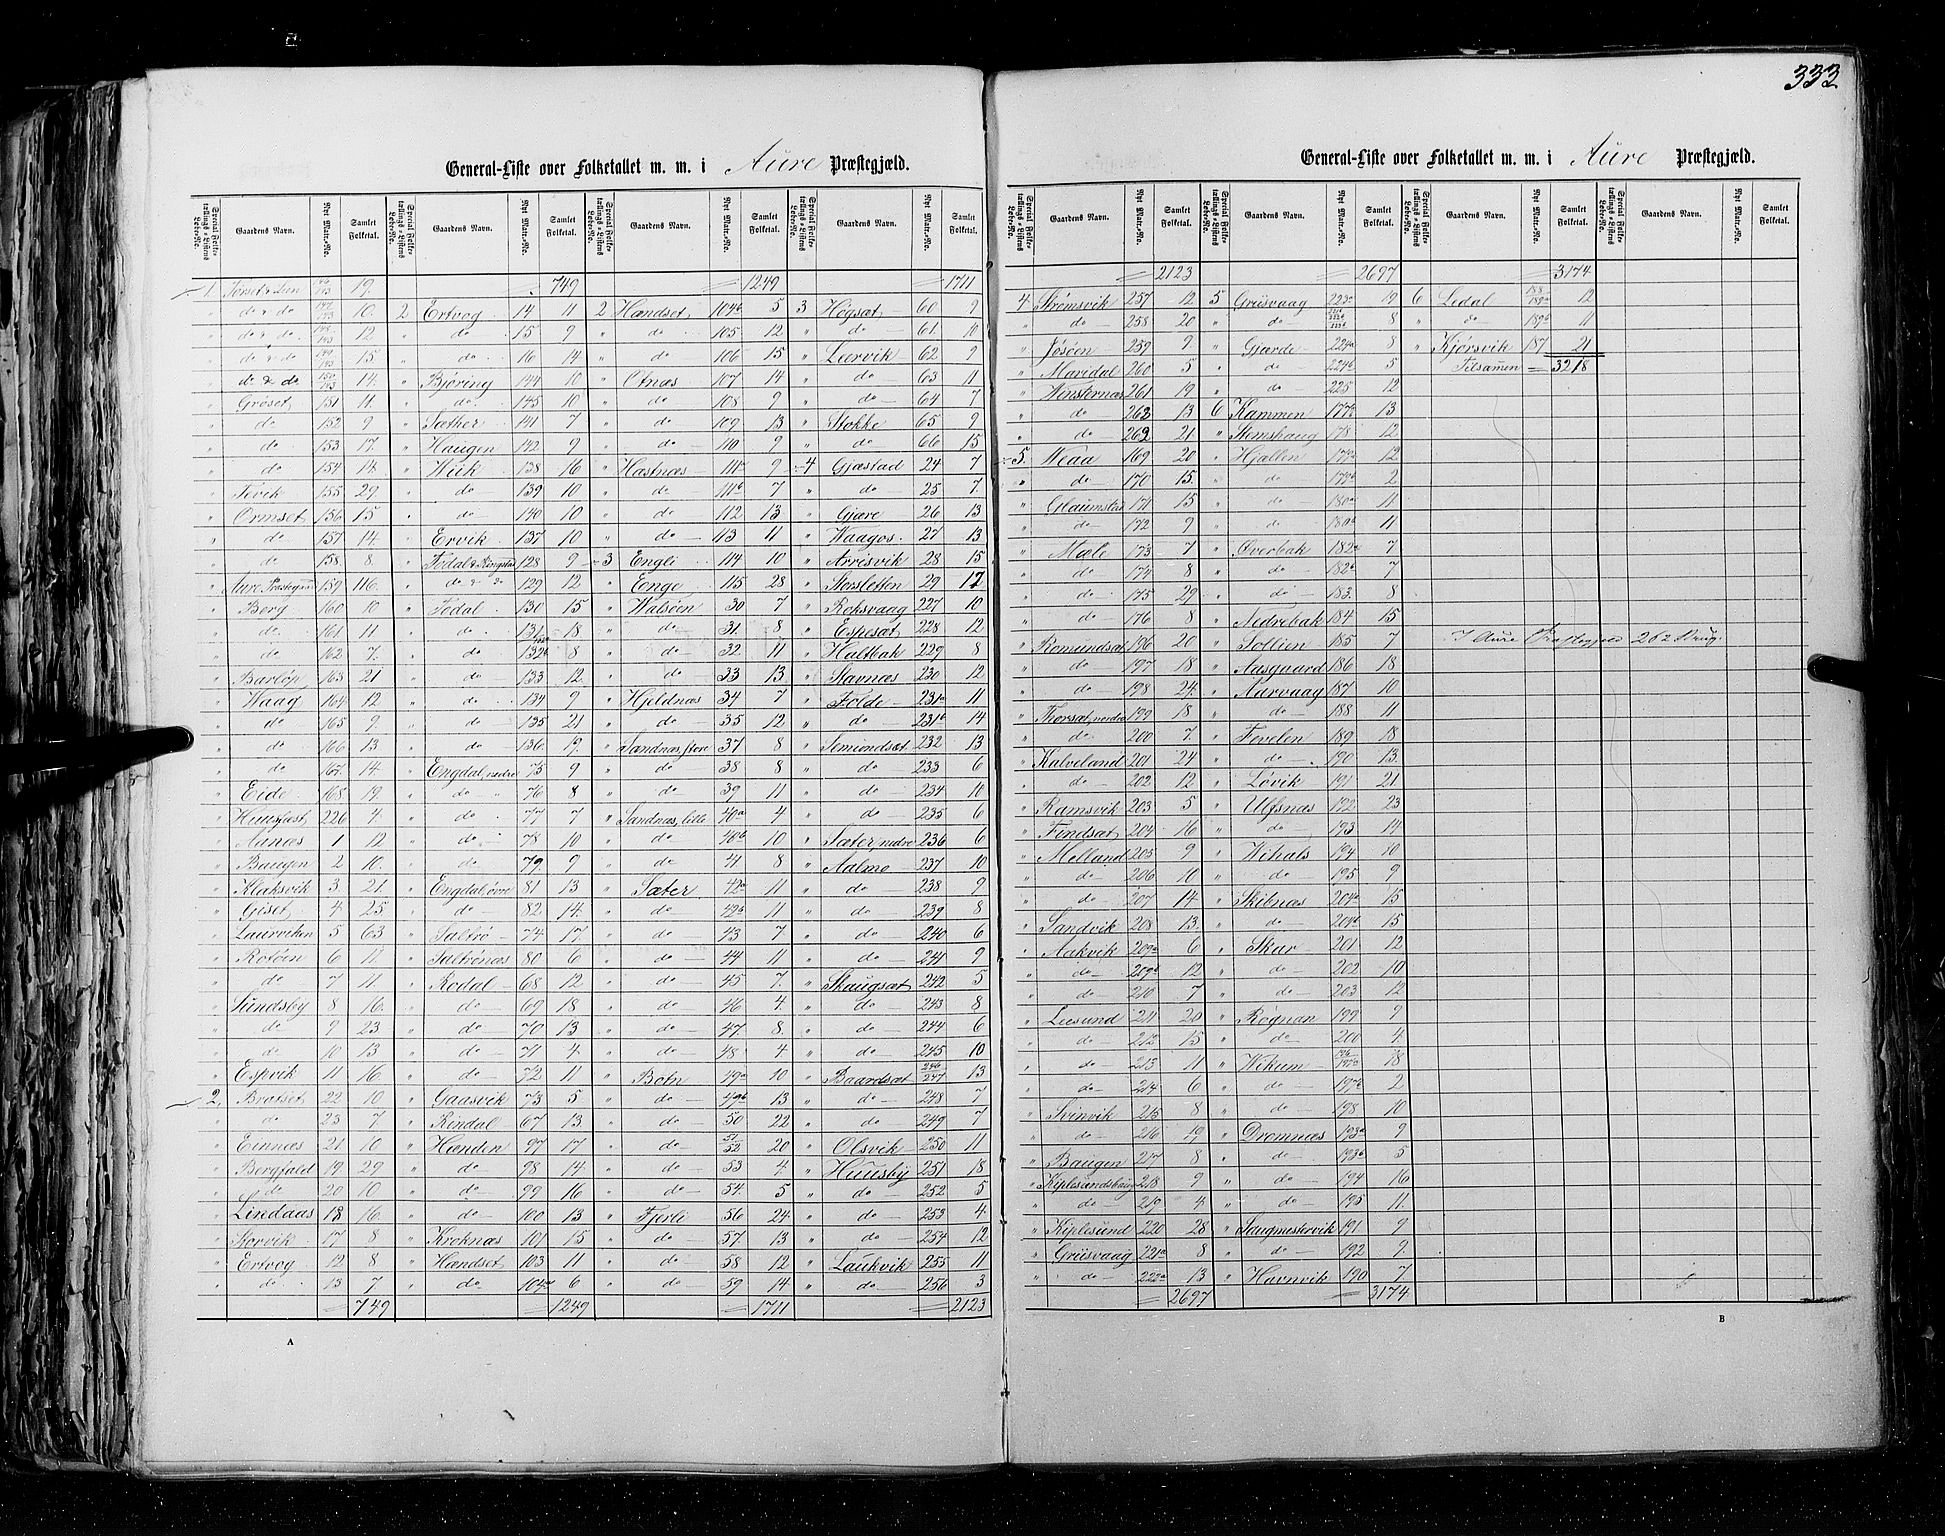 333
General-Liste over Folketallet m. m. i Aure Præstegjæld.
Special Folketællings-Listens Løbe-No. Gaardens Navn. Nyt Matr.-No. Samlet Folketal. Special Folketællings-Listens Løbe-No. Gaardens Navn. Nyt Matr.-No. Samlet Folketal. Special Folketællings-Listens Løbe-No. Gaardens Navn. Nyt Matr.-No. Samlet Folketal. Special Folketællings-Listens Løbe-No. Gaardens Navn. Nyt Matr.-No. Samlet Folketal.
1 146/193 19. 749 1249 1711
" do & do 147/193 10. 2 Ertvog 14 11 2 Hændset 104b 5 3 Høgsæt 60 9
" do & do 148/193 12 " do 15 9 " do 105 12 " do 61 10
" do & do 149/193 15 " do 16 14 " do 106 15 " Leervik 62 9
" do & do 150/193 14. " Bjøring 144 10 " Otnæs 107 14 " do 63 11
" Grøset 151 11. " do 145 10 " do 108 9 " do 64 7
" do 152 9 " Sæther 141 7 " do 109 13 " Stokke 65 9
" do 153 17. " Haugen 142 9 " do 110 9 " do 66 15
" do 154 18. " Wük 138 16 " Hæstnæs 111a 9 4 Gjæstad 24 7
" Tevik 155 29. " do 139 10 " do 111b 7 " do 25 7.
" Ormset 156 15 " do 140 10 " do 112 13 " Gjøre 26 13
" do 157 14. " Ervik 137 10 " do 113 11 " Waagos 27 13
" do 158 8. " Fedal & Ringstad 128 9 3 Engli 114 10 " Arrisvik 28 15
" Aure Præstegaard 159 116. " do & do 129 12 " Enge 115 28 " Storsletten 29 17
" Berg 160 10 " Fedal 130 15 " Walsøen 30 7 " Roksvaag 227 10
" do 161 11 " do 131 18 " do 31. 8 " Espesæt 228 12
" do 162 7. " do 132b 8 " do 32 11 " Haltbak 229 8
" Barlop 163 21 " do 133 12. " do 33 13 " Stavnæs 230 12
" Waag 164 12 " do 134 9 " Hjeldnæs 34 7 " Folde 231a 11
" do 165 9. " do 135 21 " do 35 12 " do 231b 14
" do 166 13 " do 136 19. " Sandnæs, store 37 8 " Semundsæt 232 13
" do 167 14. " Engdal, nedre 75 9 " do 38 8 " do 233 6
" Eide 168 19. " do 76 8 " do 39 11 " do 234 10
" 226 4. " do 77 7 " Sandnæs, lille 40a 4 " do 235 6
" Aanæs 1 12 " do 78 10 " do 40b 10 " Sæter, nedre 236 6
" Baugen 2 10. " do 79. 9 " do 41 8 " Aalmo 237 10
" Klaksvik 3 21. " Engdal, øvre 81 13 " Sæter 42a 11 " do 238 9
" Giset 4 25 " do 82 14. " do 42b 11 " do 239 8
" Laurviken 5 63 " Saltrø 74 17. " do 43 7 " do 240 6
" Rotøen 6 11 " Saltrønæs 80 6 " do 44 11 " do 241 9
" do 7 11. " Rodal 68 12 " do 45 7. " Skaugsæt 242 5
" Sundsby 8 16. " do 69 18 " do 46 4. " do 243 8
" do 9 23 " do 70 13 " do 47 8. " do 244 6
" do 10 13 " do 71 4. " do 48 4 " do 245 10
" Espvik 11 16. " do 72 11 " Botn 49a 10 " Baardsæt 246/247 13
2. Brotset 22 10 " Gaasvik 73 5 " do 49b 13 " do 248 7
" do 23 7 " Rindal 67 13 " do 50 22 " do 249 7
" Einnæs 21 10 " Hænden 97 17 " do 51/52 20 " Olsvik 250 11
" Bergfald 19 29 " do 98 14 " do 53 4. " Huusby 251 18
" do 20 10. " do 99 16 " do 54. 5 " do 252 5
" Liredaas 18 16. " do 100 13 " Fjerli 56 24 " do 253 4.
" Korvik 17 8 " Kroknæs 101 15 " do 57. 13 " do 254 12
" Ertvog 12 8 " Hændset 103 11 " do 58 12 " Laukvik 255 11
" do 13 7 " do 104a 6 " do 59 14 " do 256 3
749 1249 1711 2123
A
General-Liste over Folketallet m. m. i Aure Præstegjæld.
Special Folketællings-Listens Løbe-No. Gaardens Navn. Nyt Matr.-No. Samlet Folketal. Special Folketællings-Listens Løbe-No. Gaardens Navn. Nyt Matr.-No. Samlet Folketal. Special Folketællings-Listens Løbe-No. Gaardens Navn. Nyt Matr.-No. Samlet Folketal. Special Folketællings-Listens Løbe-No. Gaardens Navn. Nyt Matr.-No. Samlet Folketal.
2123 2697 3174
4 Strømsvik 257 12 5 Griisvaag 223a 19 6 Ledal 188/189a 12
" do 258 20 " do 8 " do 189b 11
" Jøsøen 259 9 " Gjærde 224a 8 " Kjørsvik 187 21
" Maridal 260 5 " do 224b 5 Tilsamen 3218
" Winsternæs 261 19 " do 225 12
" do 262 13 6 Kammen 177a 13
" do 263 21. " Stemshaug 178 12
5. Weaa 169 20 " Hjellen 179a 12
" do 170 15. " do 179b 2
" Glaumstad 171 15 " do 180a 11
" do 172 9 " do 180b 11
" Mæle 173 7 " Øverbak 182a 7
" do 174 8 " do 182b 7
" do 175 29 " do 183. 8
" do 176 8 " Nedrebak 184 15
" Romundsæt 196 20 " Sollien 185 7 I Aure Præstegjeld 262 Brug.
" do 197 18 " Aasgaard 186 18
" do 198 24. " Aarvaag 187 10
" Thorsæt, nordre 199 18 " do 188 11
" do 200 7 " Fevelen 189 18
" Kalveland 201 24 " do 190 13.
" do 202 12 " Løvik 191 21.
" Ramsvik 203 5 " Ulfsnæs 192 23
" Findsæt 204 16 " do 193 14
" Melland 205 9 " Wihals 194 10
" do 206 10 " do 195 9
" do 207 14 " Skibnæs 204a 15
" Sandvik 208 13. " do 204b 15
" Aakvik 209a 6 " Skar 201 12
" do 209b 12 " do 202 10
" do 210 7 " do 203 12
" Leesund 211 20 " Rognan 199 9
" do 212 15 " do 200 4.
" do 213 11 " Wikum 196/197a 18
" do 214 6 " do 197b 2
" Svinvik 215 8 " do 198 10
" do 216 " Dromnæs 193a 9
" Baugen 217 8 " do 193b 5
" Kiplesundshaug 218 9 " do 194 16
" do 219 4 " do 195 11.
" Kiplesund 220 28 " Saugmestervik 191. 9
" Griisvaag 221a 8 " do 192 9.
" do 222a 13 " Havnvik 190 7.
2697 3174
B